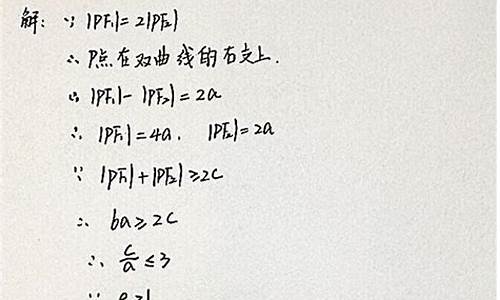 解: ∵ |PF₁|=2|PF₂|
∴ P点在双曲线的右支上.
∵ |PF₁|-|PF₂|=2a
∴ |PF₁|=4a, |PF₂|=2a
∵ |PF₁|+|PF₂|≥2c
∴ 6a≥2c
∴ c/a≤3